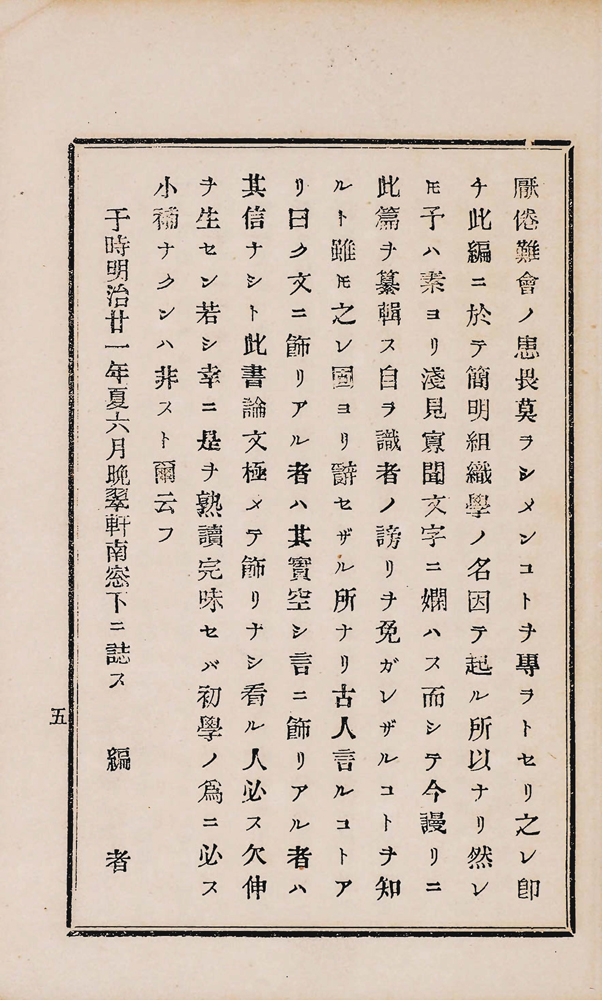 厭倦難會ノ患畏莫ラシメンコトヲ專ヲトセリ之レ卽
チ此編ニ於テ簡明組織學ノ名因テ起ル所以ナリ然レ
𪜈予ハ素ヨリ淺見寡聞文字ニ嫻ハス而シテ今謾リニ
此篇ヲ纂輯ス自ラ識者ノ謗リヲ免ガレザルコトヲ知
ルト雖𪜈之レ固ヨリ辭セザル所ナリ古人言ルコトア
リ曰ク文ニ飾リアル者ハ其實空シ言ニ飾リアル者ハ
其信ナシト此書論文極メテ飾リナシ看ル人必ス欠伸
ヲ生セン若シ幸ニ是ヲ熟讀完味セバ初學ノ爲ニ必ス
小補ナクンハ非スト爾云フ
于時明治廿一年夏六月晩翠軒南窓下ニ誌ス　編者
五